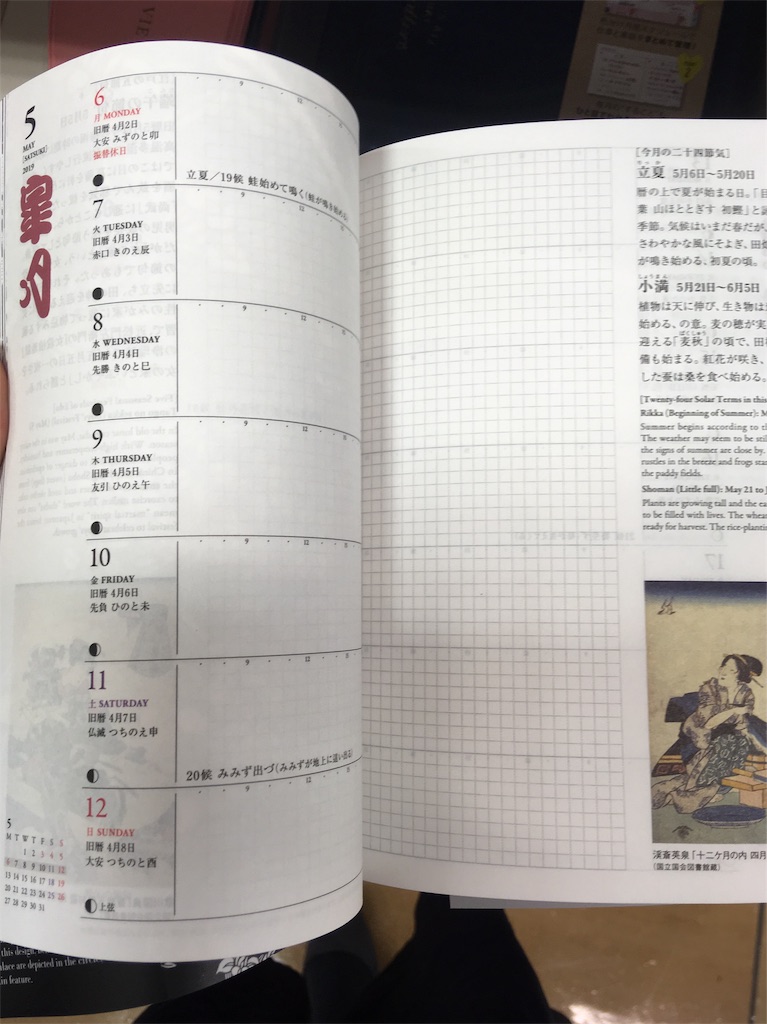 5
MAY
[SATSUKI]
2019
皐月
6
月 MONDAY
旧暦 4月2日
大安 みずのと卯
振替休日
9
12
立夏/19候 蛙始めて鳴く(蛙が鳴き始める)
7
火 TUESDAY
旧暦 4月3日
赤口 きのえ辰
9
12
15
8
水 WEDNESDAY
旧暦 4月4日
先勝 きのと巳
9
12
15
9
木 THURSDAY
旧暦 4月5日
友引 ひのえ午
9
12
15
10
金 FRIDAY
旧暦 4月6日
先負 ひのと未
9
12
15
11
土 SATURDAY
旧暦 4月7日
仏滅 つちのえ申
9
12
15
20候 みみず出づ(みみずが地上に這い出る)
12
日 SUNDAY
旧暦 4月8日
大安 つちのと酉
9
12
15
上弦
5
M T W T F S S
1 2 3 4 5
6 7 8 9 10 11 12
13 14 15 16 17 18 19
20 21 22 23 24 25 26
27 28 29 30 31
[今月の二十四節気]
りっか
立夏 5月6日~5月20日
暦の上で夏が始まる日。「目
葉 山ほととぎす 初鰹」と
季節。気候はいまだ春だが、
さわやかな風にそよぎ、田
が鳴き始める、初夏の頃。
しょうまん
小満 5月21日~6月5日
植物は天に伸び、生き物は
始める、の意。麦の穂が実
ばくしゅう
迎える「麦秋」の頃で、田
備も始まる。紅花が咲き、
した蚕は桑を食べ始める。
[Twenty-four Solar Terms in this
Rikka (Beginning of Summer): M
Summer begins according to th
The weather may seem to be stil
the signs of summer are close by.
rustles in the breeze and frogs star
the paddy fields.
Shoman (Little full): May 21 to J
Plants are growing tall and the ea
to be filled with lives. The whea
ready for harvest. The rice-plantin
渓斎英泉「十二ケ月の内 四月
(国立国会図書館蔵)
this design.
lace are depicted in the circle
in feature.